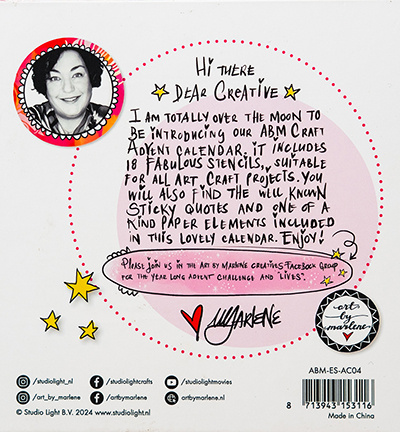 Hi There
Dear Creative
I am totally over the moon to
be introducing our ABM Craft
Advent Calendar. It includes
18 fabulous stencils, suitable
for all art craft projects. You
will also find the well known
sticky quotes and one of a
kind paper elements included
in this lovely calendar. Enjoy!
Please join us in the Art by Marlene Creatives Facebook Group
for the year long advent challenge and "Lives".
Marlene
art
by
marlene
ABM-ES-AC04
/studiolight_nl
/studiolightcrafts
/studiolightmovies
/art_by_marlene
/artbymarlene
artbymarlene.nl
© Studio Light B.V. 2024 www.studiolight.nl
8 713943 153116
Made in China